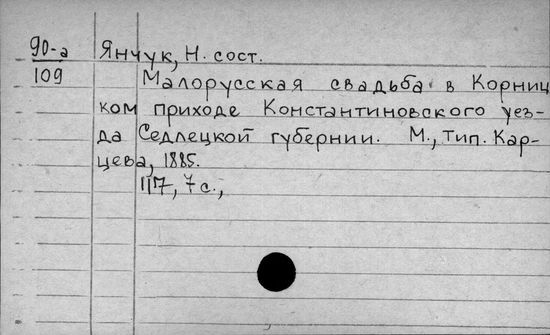 90-а Янчук, Н. сост.
109 Малорусская свадьба в Корниц
ком приходе Константиновского уез-
да Седлецкой губернии. М., тип. Кар-
цева, 1885.
117, 7 с.,